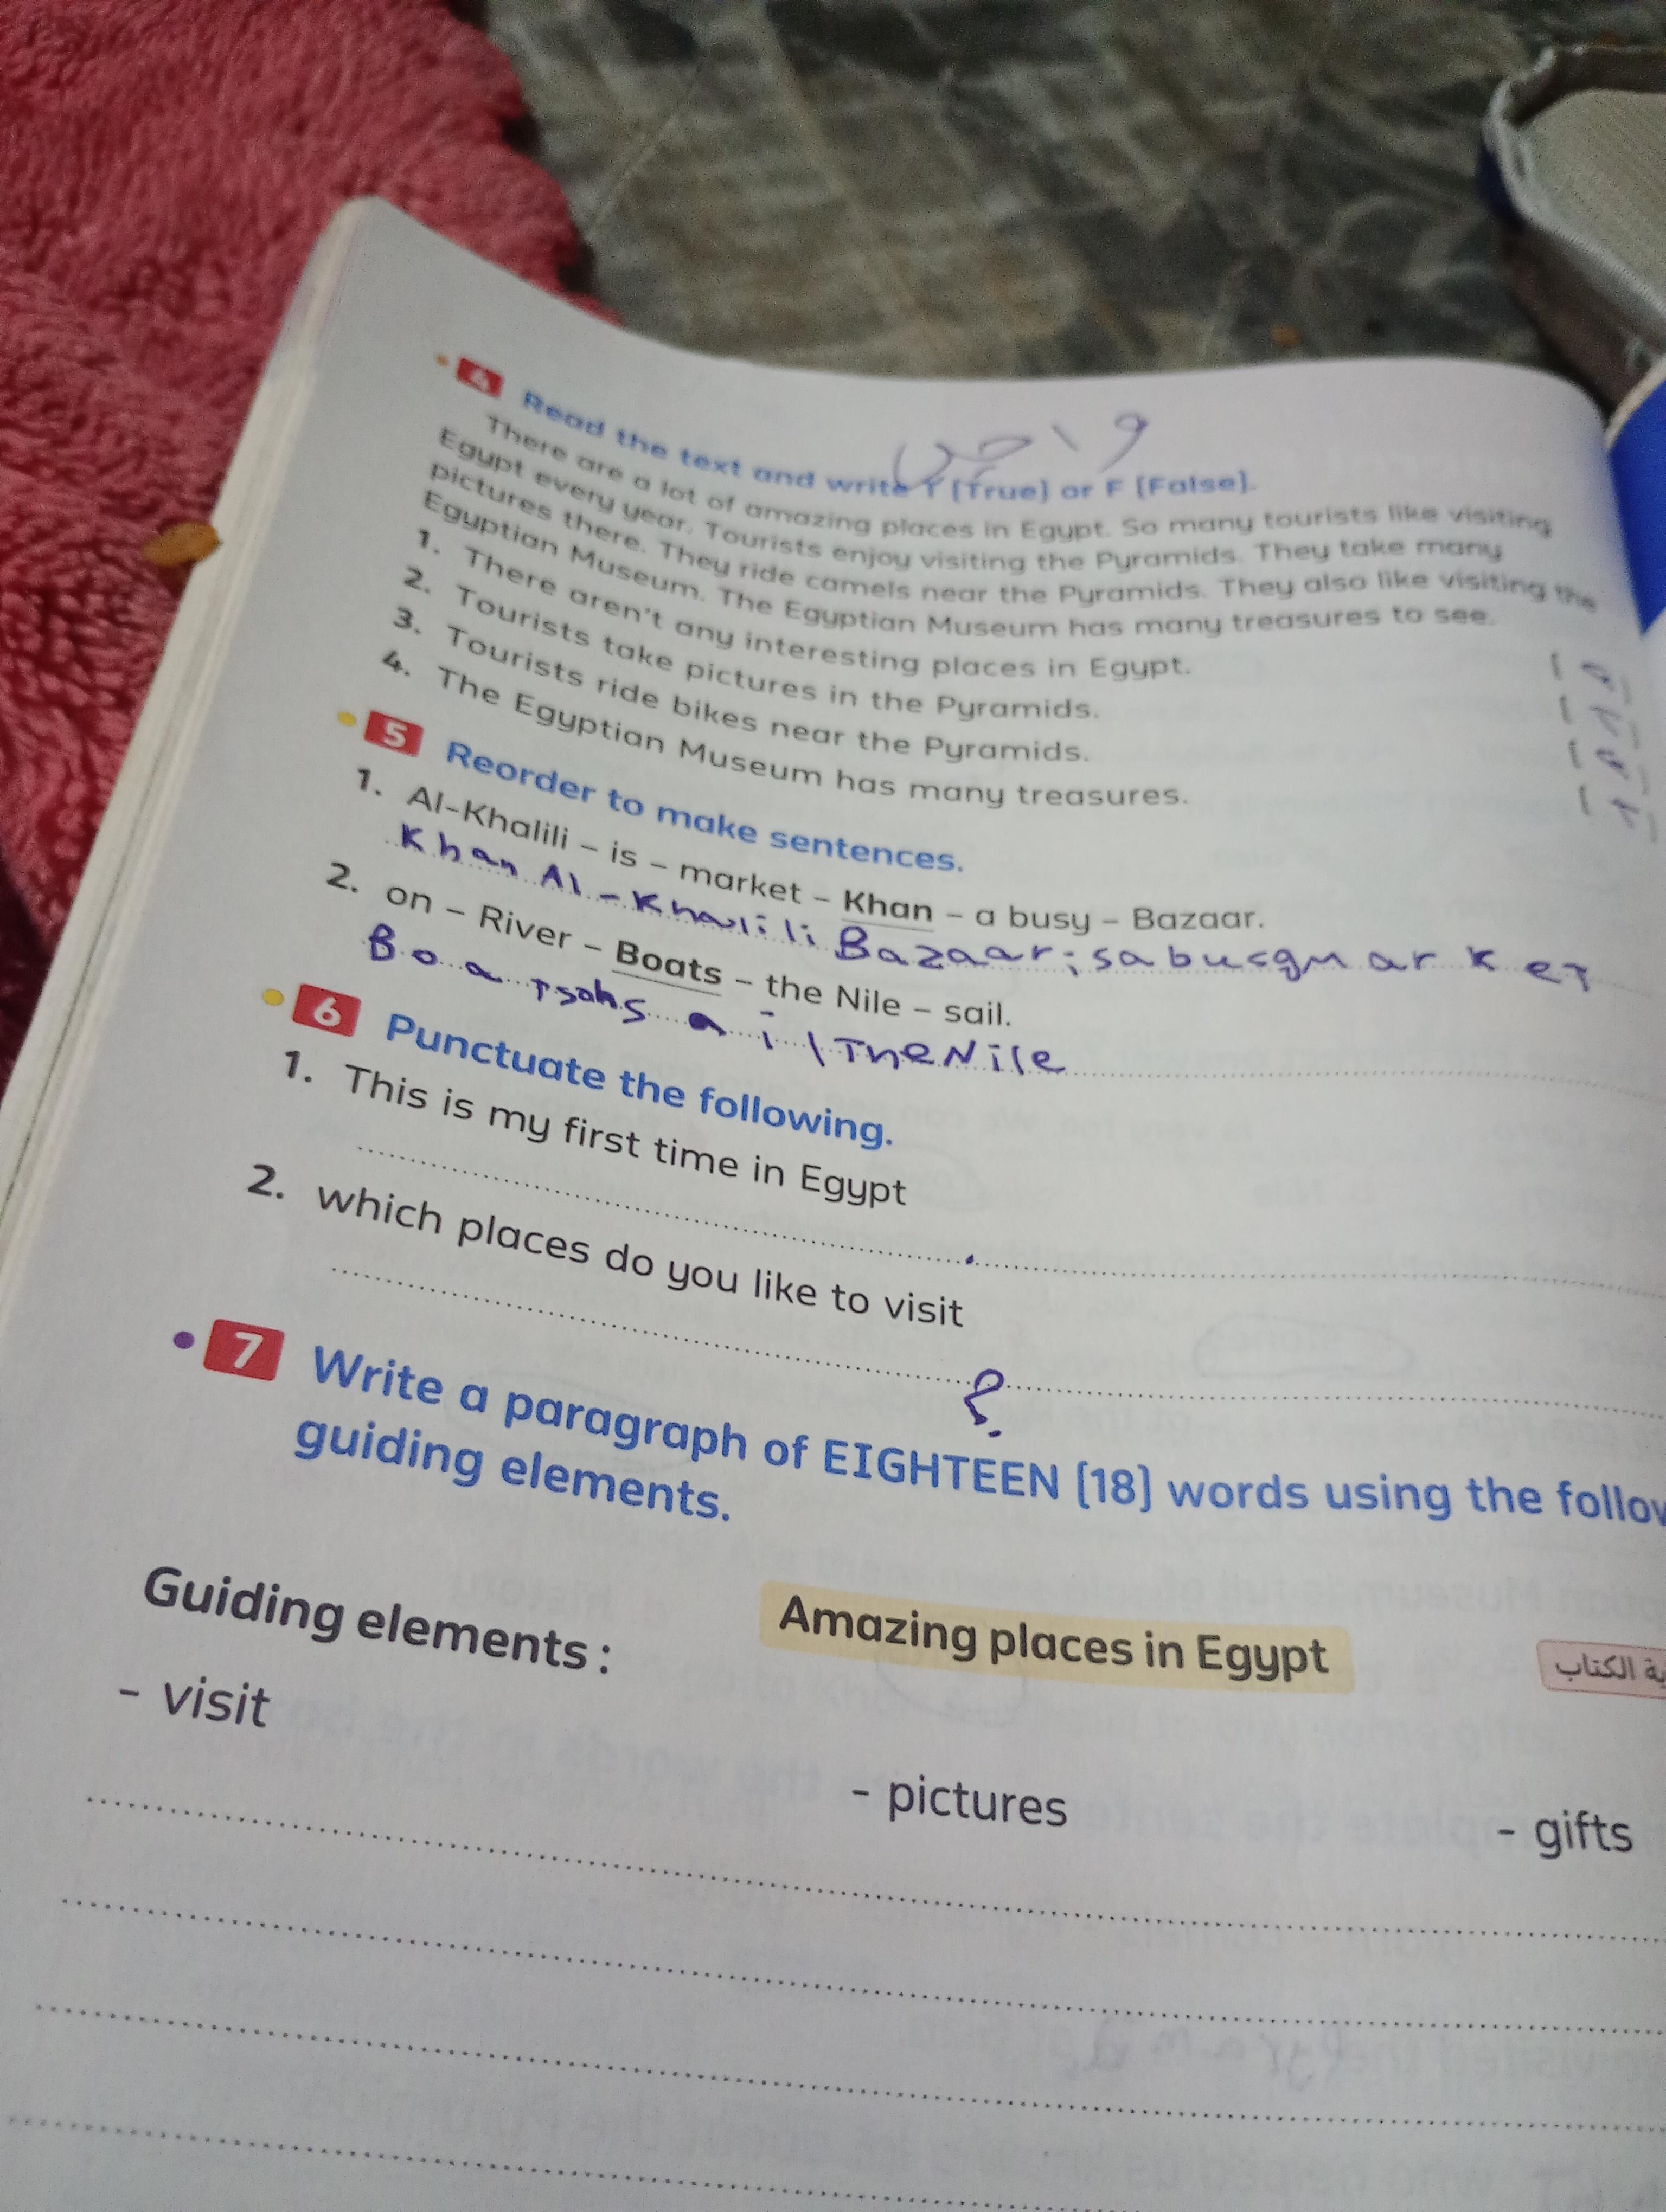 4 Read the text and write T (True) or F (False).
واجب
There are a lot of amazing places in Egypt. So many tourists like visiting
Egypt every year. Tourists enjoy visiting the Pyramids. They take many
pictures there. They ride camels near the Pyramids. They also like visiting the
Egyptian Museum. The Egyptian Museum has many treasures to see.
1. There aren't any interesting places in Egypt.
2. Tourists take pictures in the Pyramids.
3. Tourists ride bikes near the Pyramids.
4. The Egyptian Museum has many treasures.
5 Reorder to make sentences.
1. Al-Khalili – is – market – Khan – a busy – Bazaar.
Khan Al-Khalili Bazaar is a busg market
2. on – River – Boats – the Nile – sail.
Boats ail The Nile
6 Punctuate the following.
1. This is my first time in Egypt
.
2. which places do you like to visit
?
7 Write a paragraph of EIGHTEEN (18) words using the
guiding elements.
Amazing places in Egypt
الكتاب
Guiding elements :
- visit - pictures - gifts